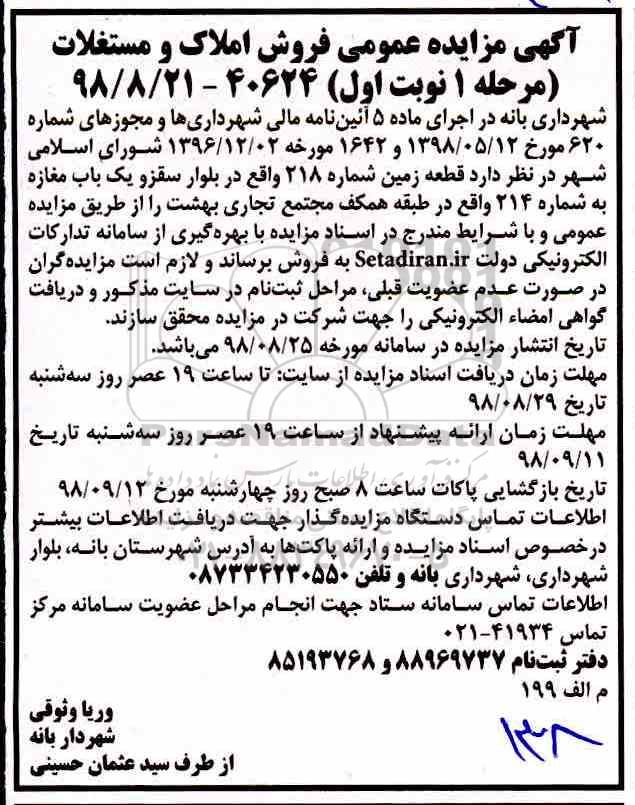 آگهی مزایده عمومی فروش املاک و مستغلات
(مرحله ۱ نوبت اول) ۴۰۶۲۴ - ۹۸/۸/۲۱
شهرداری بانه در اجرای ماده ۵ آئین‌نامه مالی شهرداری‌ها و مجوزهای شماره
۶۲۰ مورخ ۱۳۹۸/۰۵/۱۲ و ۱۶۴۲ مورخه ۱۳۹۶/۱۲/۰۲ شورای اسلامی
شهر در نظر دارد قطعه زمین شماره ۲۱۸ واقع در بلوار سقزو یک باب مغازه
به شماره ۲۱۴ واقع در طبقه همکف مجتمع تجاری بهشت را از طریق مزایده
عمومی و با شرایط مندرج در اسناد مزایده با بهره‌گیری از سامانه تدارکات
الکترونیکی دولت Setadiran.ir به فروش برساند و لازم است مزایده‌گران
در صورت عدم عضویت قبلی، مراحل ثبت‌نام در سایت مذکور و دریافت
گواهی امضاء الکترونیکی را جهت شرکت در مزایده محقق سازند.
تاریخ انتشار مزایده در سامانه مورخه ۹۸/۰۸/۲۵ می‌باشد.
مهلت زمان دریافت اسناد مزایده از سایت: تا ساعت ۱۹ عصر روز سه‌شنبه
تاریخ ۹۸/۰۸/۲۹
مهلت زمان ارائه پیشنهاد از ساعت ۱۹ عصر روز سه‌شنبه تاریخ
۹۸/۰۹/۱۱
تاریخ بازگشایی پاکات ساعت ۸ صبح روز چهارشنبه مورخ ۹۸/۰۹/۱۳
اطلاعات تماس دستگاه مزایده‌گذار جهت دریافت اطلاعات بیشتر
درخصوص اسناد مزایده و ارائه پاکت‌ها به آدرس شهرستان بانه، بلوار
شهرداری، شهرداری بانه و تلفن ۰۸۷۳۳۴۲۳۰۵۵۰
اطلاعات تماس سامانه ستاد جهت انجام مراحل عضویت سامانه مرکز
تماس ۴۱۹۳۴-۰۲۱
دفتر ثبت‌نام ۸۸۹۶۹۷۳۷ و ۸۵۱۹۳۷۶۸
م الف ۱۹۹
وریا وثوقی
شهردار بانه
از طرف سید عثمان حسینی